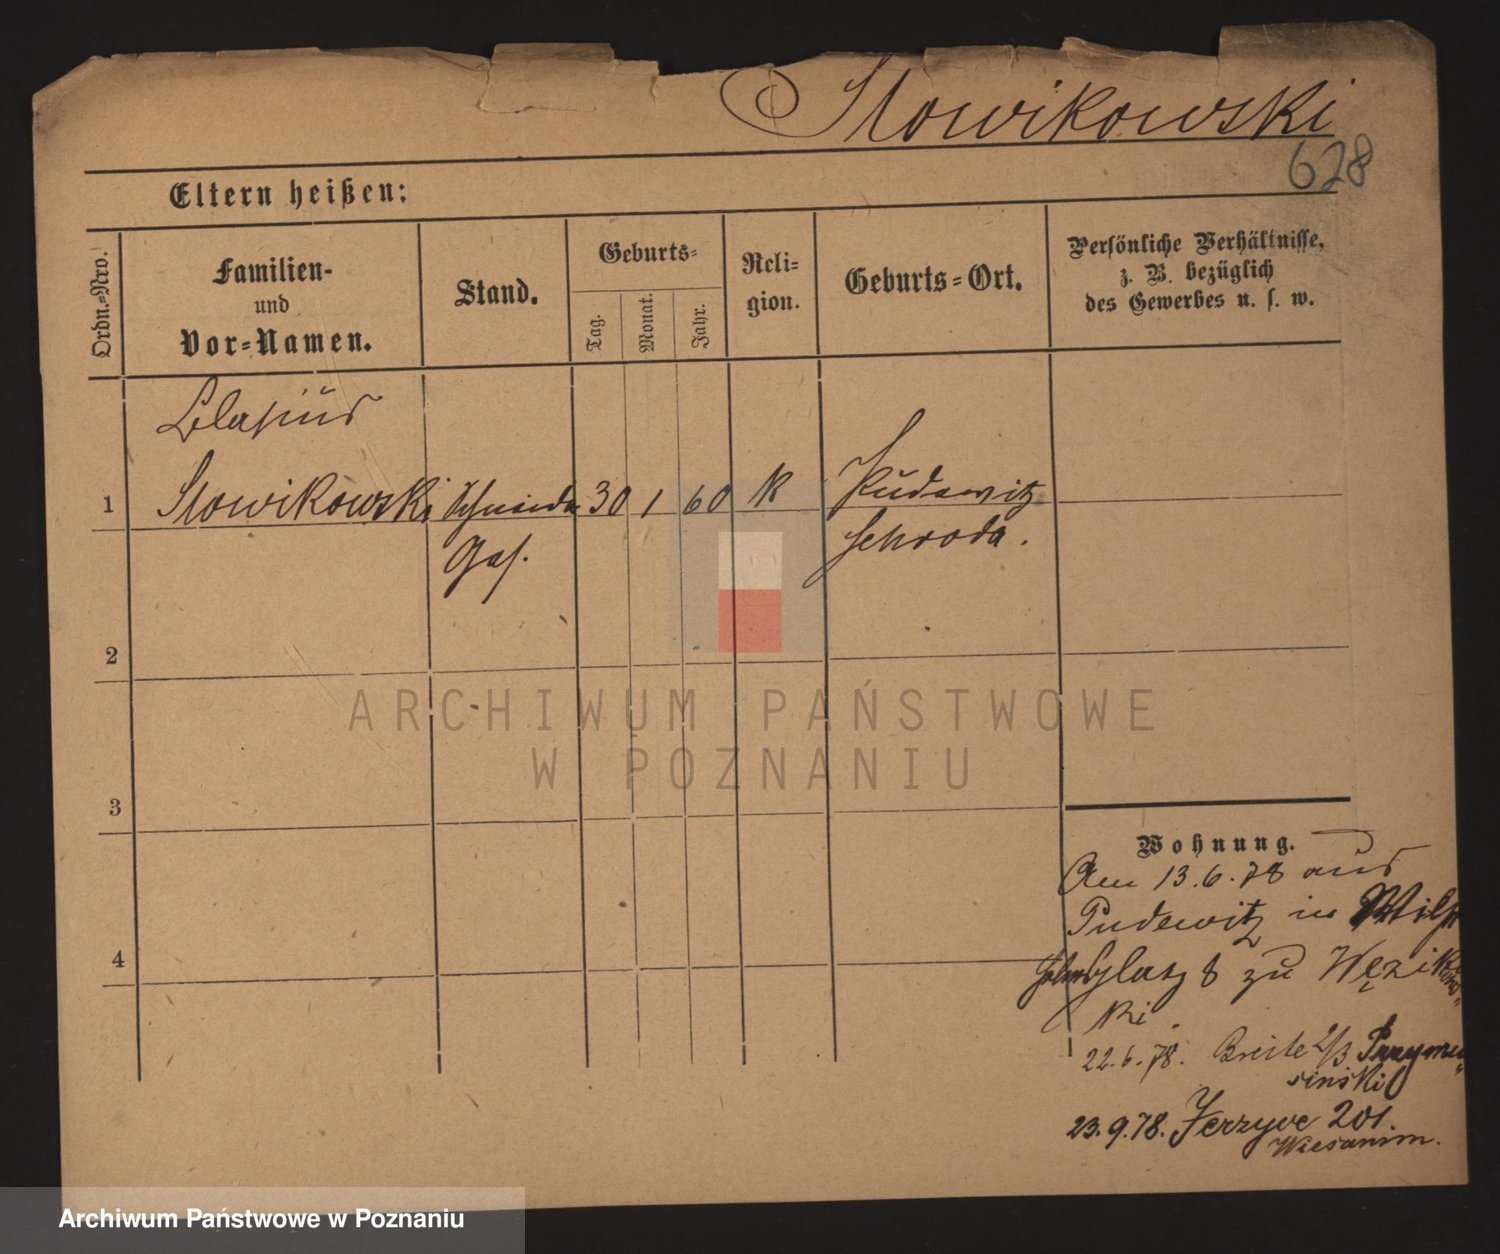 Slowikowski
628
Eltern heißen:
Ordn.-Nro.
Familien-
und
Vor-Namen.
Stand.
Geburts-
Tag.
Monat.
Jahr.
Reli-
gion.
Geburts-Ort.
Persönliche Verhältnisse,
z. B. bezüglich
des Gewerbes u. s. w.
Blasius
1 Slowikowski Schneider 30 1 60 k Pudewitz
Ges. Schroda.
2
3
4
Wohnung.
Am 13.6.78 aus
Pudewitz in Wilh
platz 8 zu Węzikows
ki.
22.6.78. Breite 2/3 Przymu
sinski
23.9.78. Jerzyce 201.
ARCHIWUM PAŃSTWOWE
W POZNANIU
Archiwum Państwowe w Poznaniu